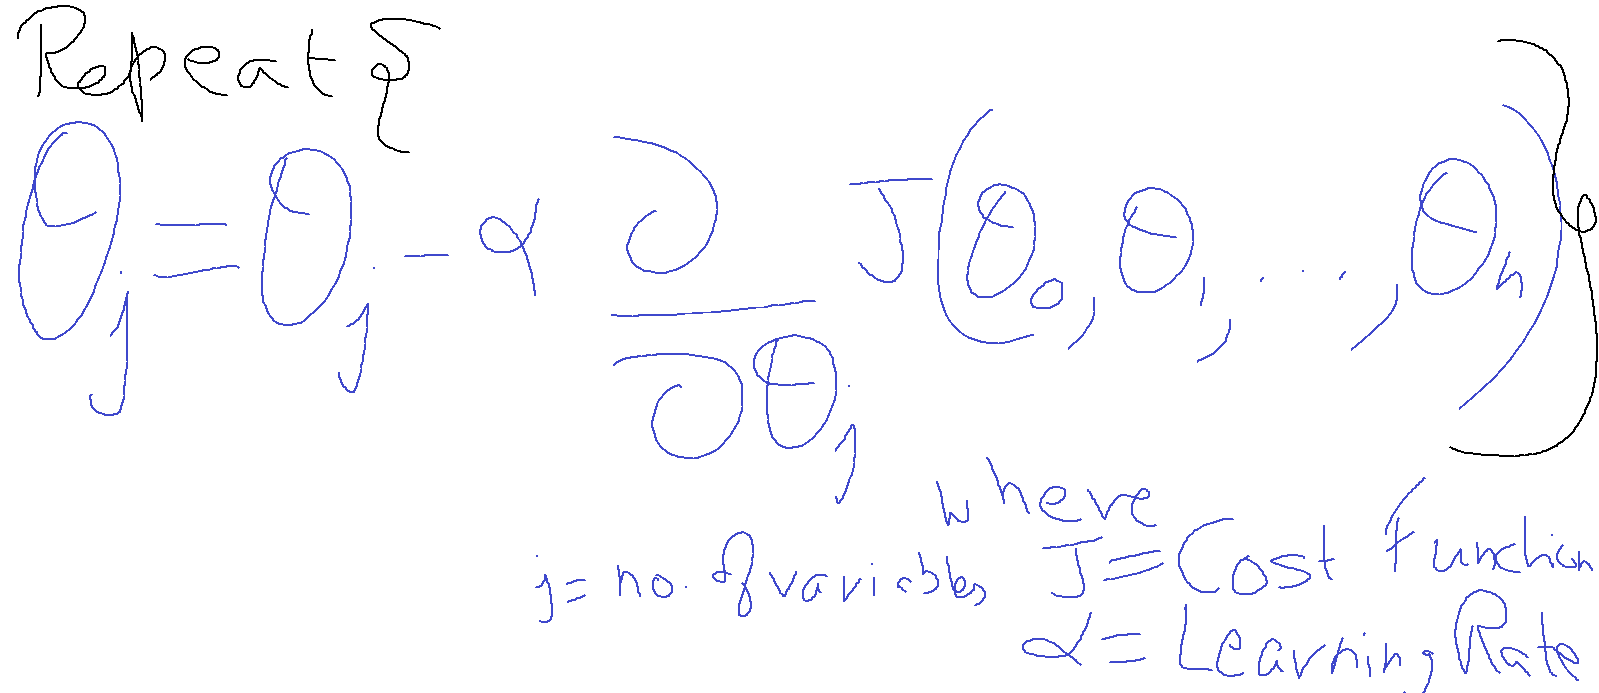 Repeat {
θj = θj - α ∂/∂θj J(θ0, θ1, ..., θn) }
where
j = no. of variables J = Cost Function
α = Learning Rate